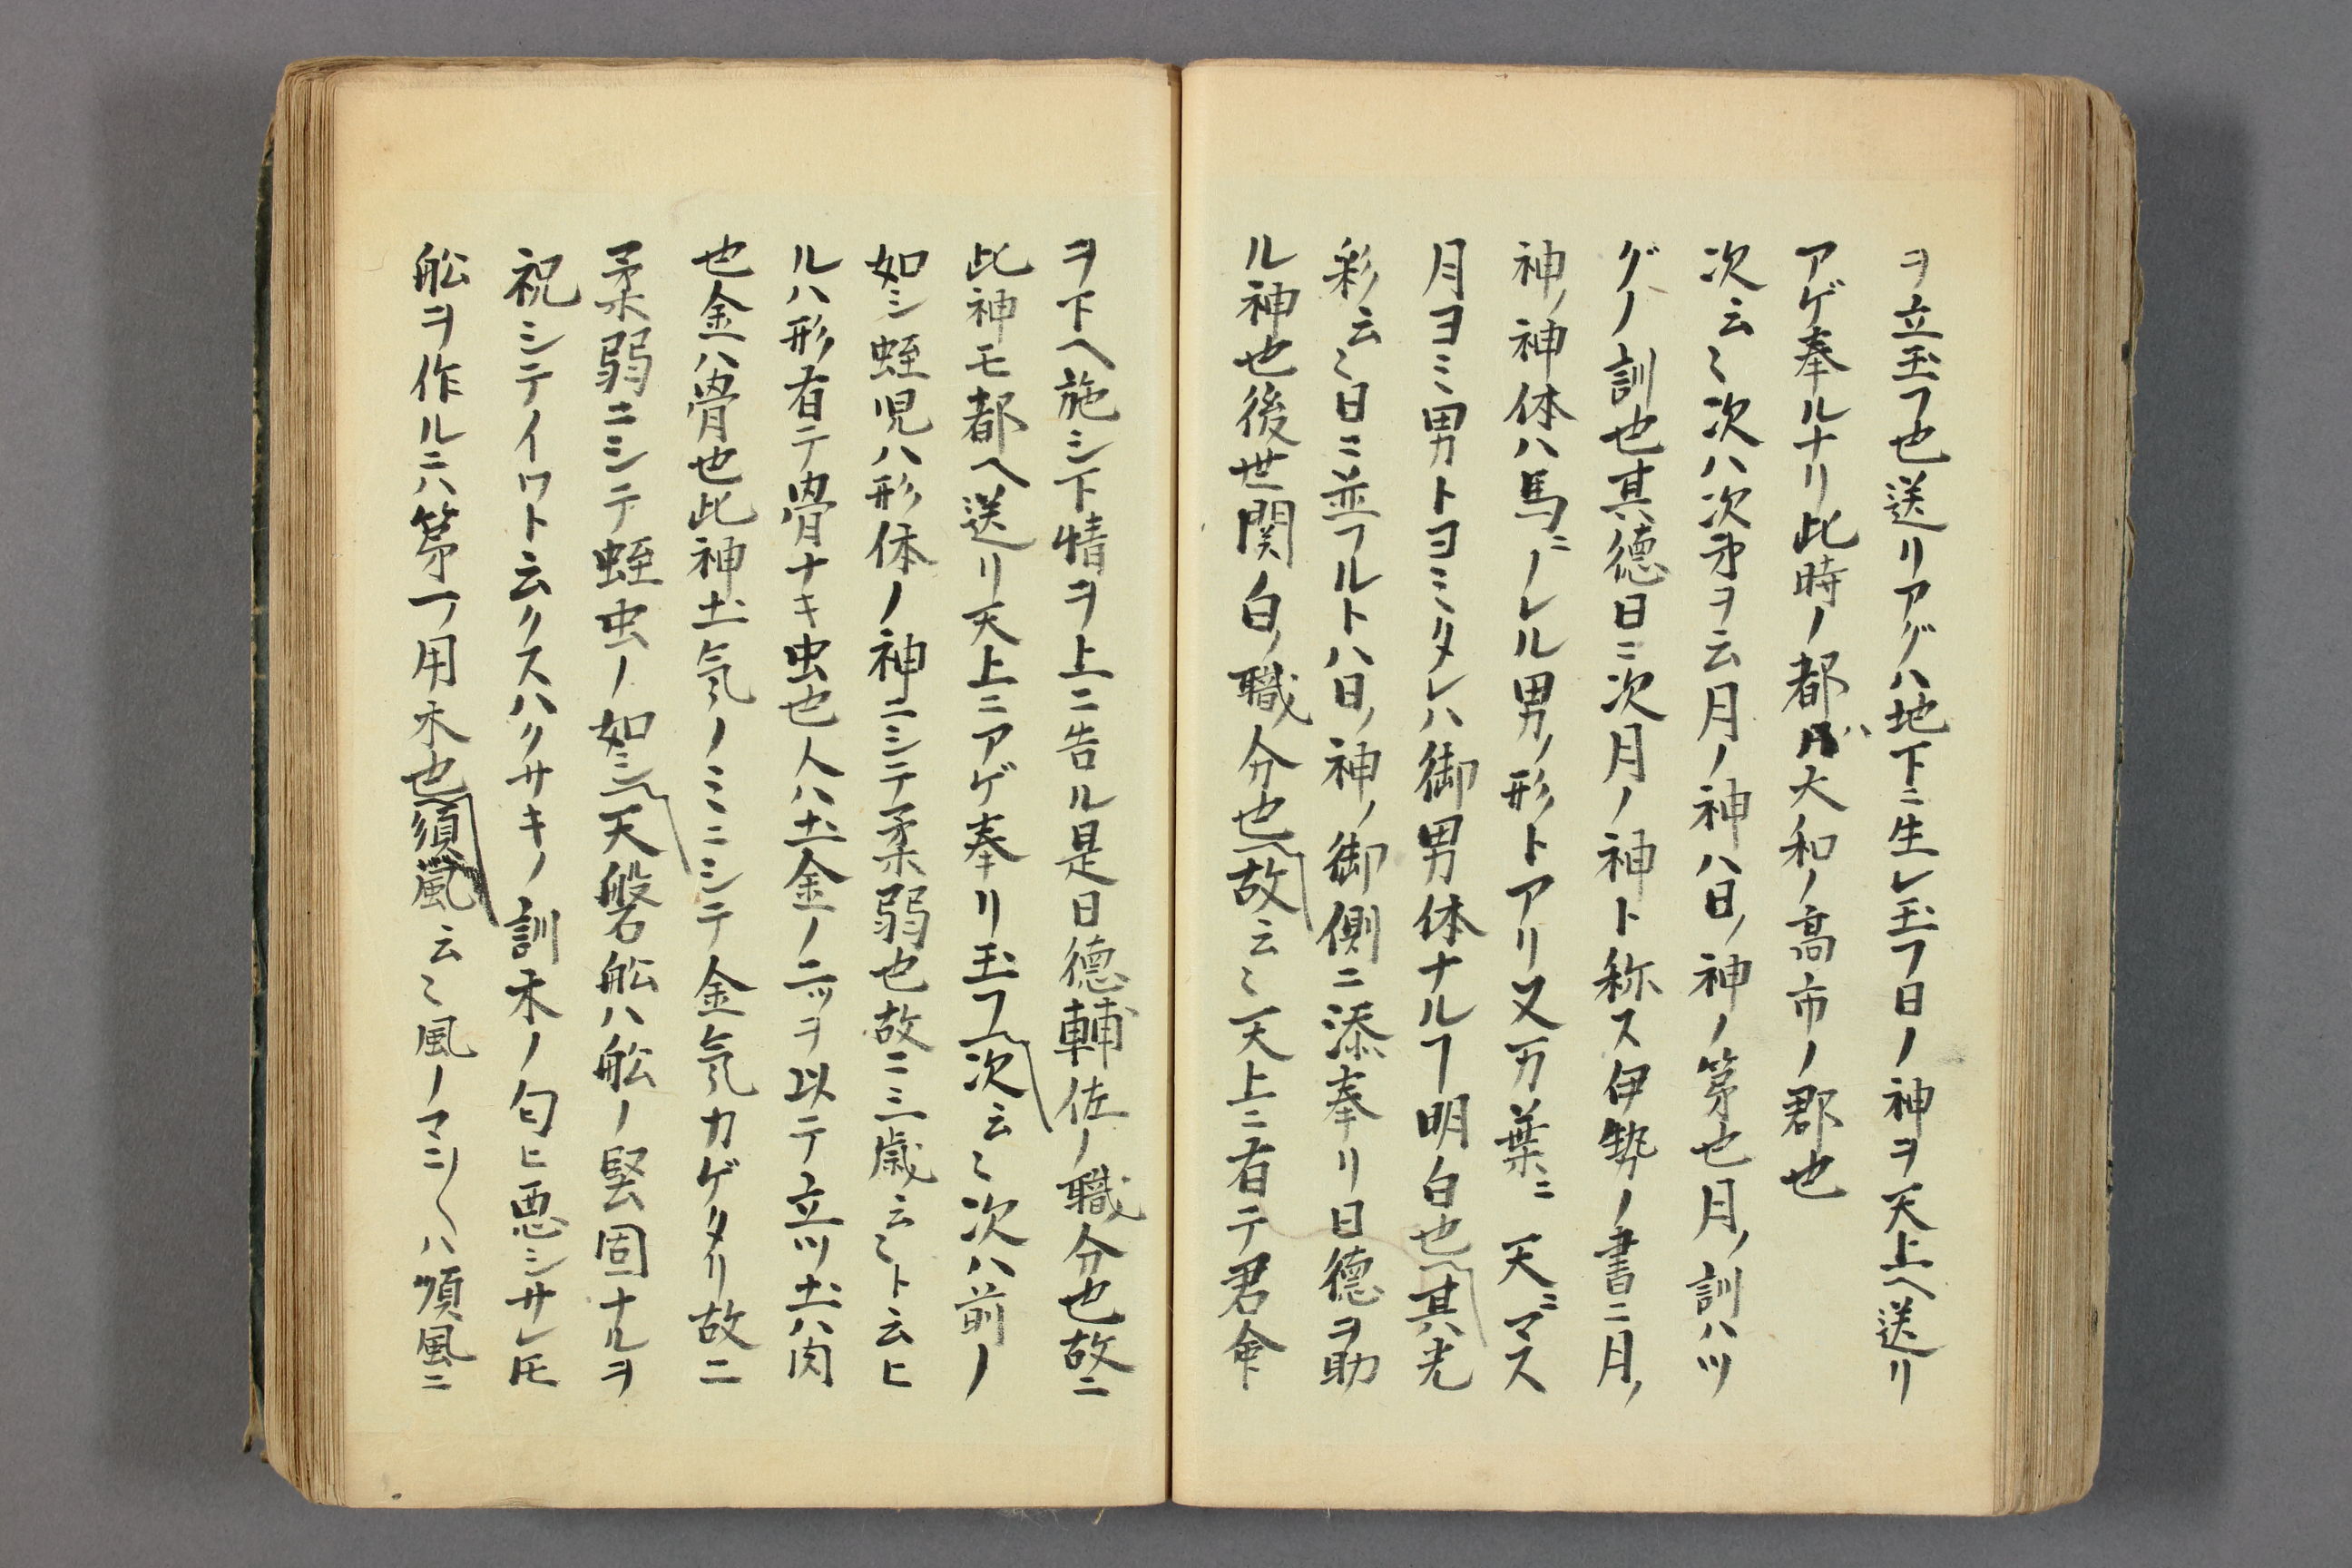 ヲ立玉フ也送リアグハ地下ニ生レ玉フ日ノ神ヲ天上ヘ送リ
アゲ奉ルナリ此時ノ都ハ大和ノ高市ノ郡也
次云〻次ハ次第ヲ云月ノ神ハ日ノ神ノ第也月ノ訓ハツ
グノ訓也其徳日ニ次月ノ神ト称ス伊勢ノ書ニ月ノ
神ノ神体ハ馬ニノレル男ノ形トアリ又万葉ニ天ニマス
月ヨミ男トヨミタレハ御男体ナルヿ明白也其光
彩云〻日ニ並フルトハ日ノ神ノ御側ニ添奉リ日徳ヲ助
ル神也後世関白ノ職分也故云〻天上ニ有テ君命
ヲ下ヘ施シ下情ヲ上ニ告ル是日徳輔佐ノ職分也故ニ
此神モ都ヘ送リ天上ニアゲ奉リ玉フ次云〻次ハ前ノ
如シ蛭児ハ形体ノ神ニシテ柔弱也故ニ三歳云〻ト云ヒ
ルハ形有テ骨ナキ虫也人ハ土金ノ二ッヲ以テ立ツ土ハ肉
也金ハ骨也此神土気ノミニシテ金気カゲタリ故ニ
柔弱ニシテ蛭虫ノ如シ天磐舩ハ舩ノ堅固ナルヲ
祝シテイワト云クスハクサキノ訓木ノ匂ヒ悪シサレ𪜈
舩ヲ作ルニハ第一ノ用木也須風云〻風ノマニ〱ハ順風ニ